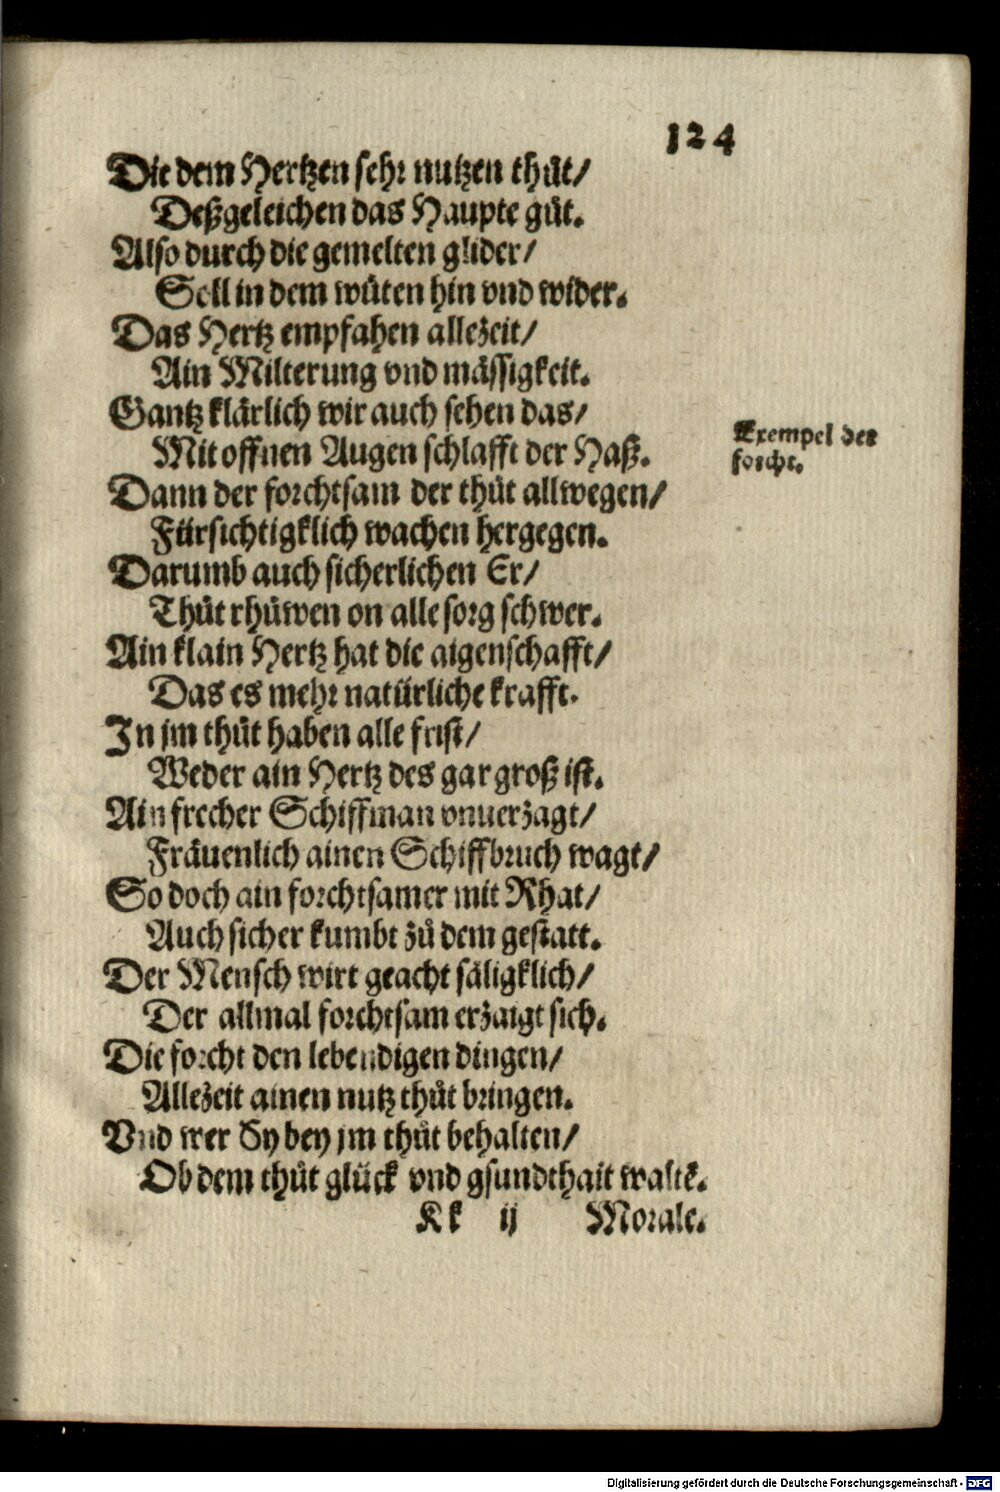 124
Die dem Hertzen sehr nutzen thůt/
Deßgeleichen das Haupte gůt.
Also durch die gemelten glider/
Soll in dem wůten hin vnd wider.
Das Hertz empfahen allezeit/
Ain Milterung vnd mässigkeit.
Gantz klärlich wir auch sehen das/
Mit offnen Augen schlafft der Haß.
Exempel der
forcht.
Dann der forchtsam der thůt allwegen/
Fürsichtigklich wachen hergegen.
Darumb auch sicherlichen Er/
Thůt rhůwen on alle sorg schwer.
Ain klain Hertz hat die aigenschafft/
Das es mehr natürliche krafft.
In jm thůt haben alle frist/
Weder ain Hertz des gar groß ist.
Ain frecher Schiffman vnuerzagt/
Fräuenlich ainen Schiffbruch wagt/
So doch ain forchtsamer mit Rhat/
Auch sicher kumbt zů dem gestatt.
Der Mensch wirt geacht säligklich/
Der allmal forchtsam erzaigt sich.
Die forcht den lebendigen dingen/
Allezeit ainen nutz thůt bringen.
Vnd wer Sy bey jm thůt behalten/
Ob dem thůt glück vnd gsundthait walte.
Kk ij Morale.
Digitalisierung gefördert durch die Deutsche Forschungsgemeinschaft - DFG